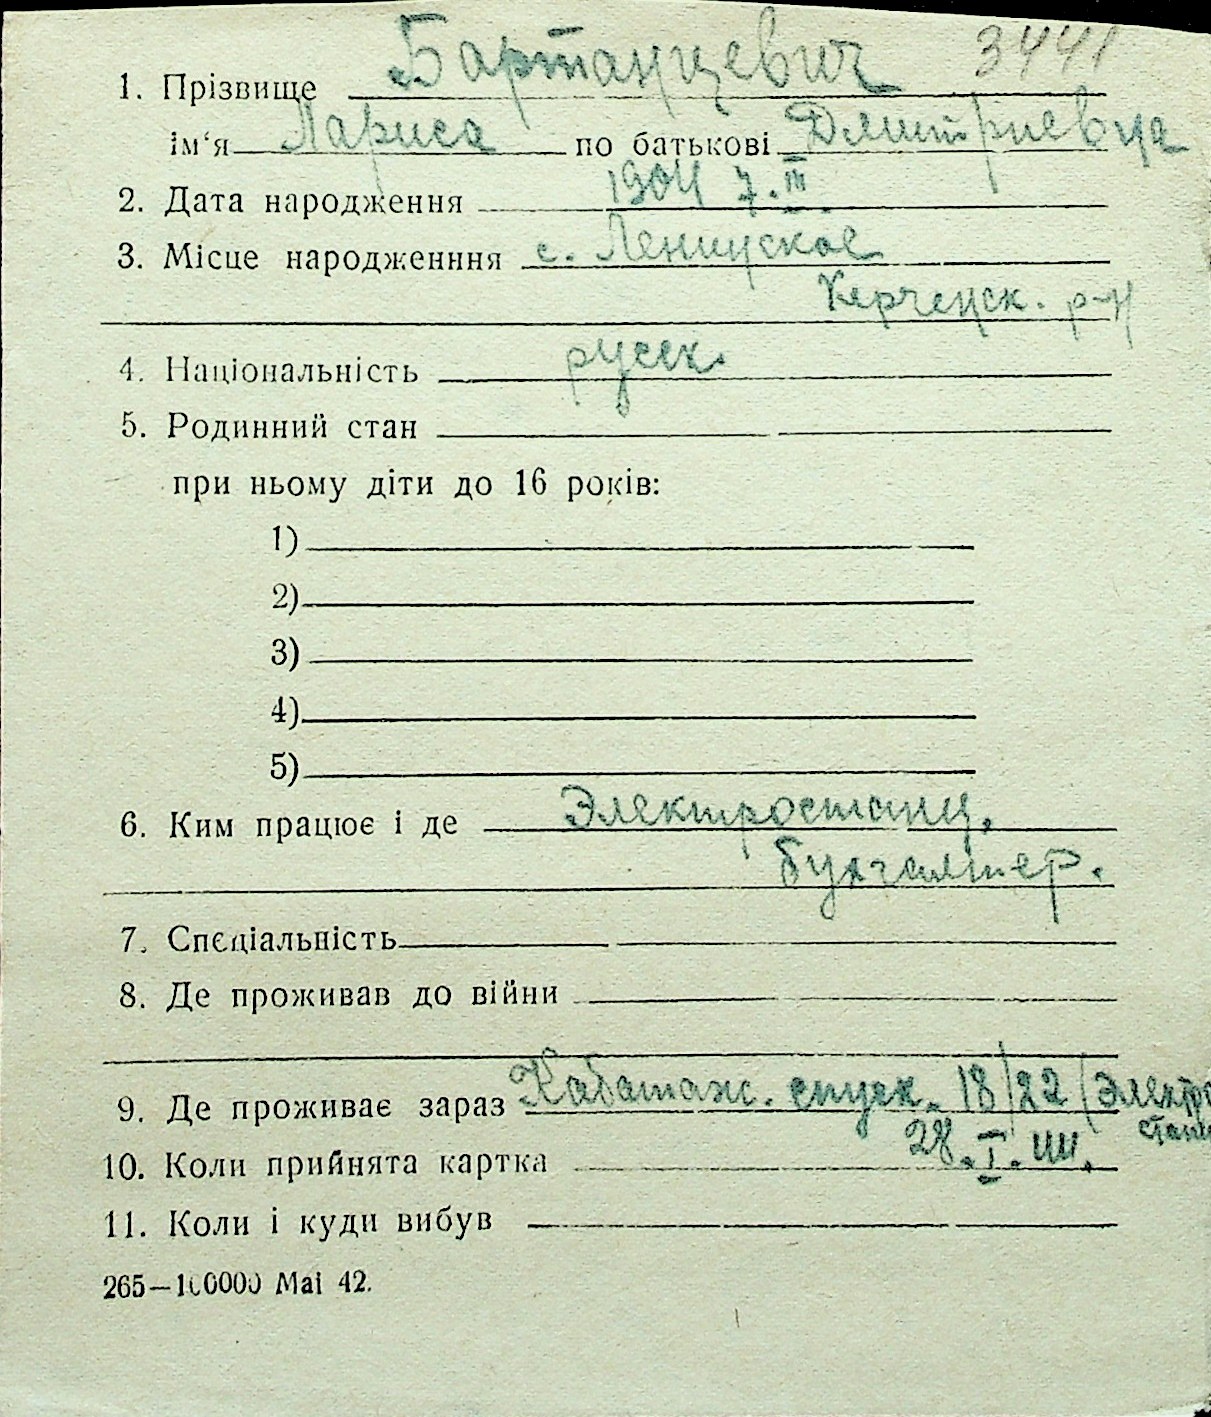 3441
1. Прізвище Бартанцевич
ім'я Лариса по батькові Дмитриевна
2. Дата народження 1904 7.III
3. Місце народженння с. Ленинское
Керченск. р-н
4. Національність русск.
5. Родинний стан
при ньому діти до 16 років:
1)
2)
3)
4)
5)
6. Ким працює і де Электростанц,
бухгалтер.
7. Спеціальність
8. Де проживав до війни
9. Де проживає зараз спуск. 18/22 (Электро
стан
10. Коли прийнята картка 28.I.
11. Коли і куди вибув
265—100000 Mai 42.